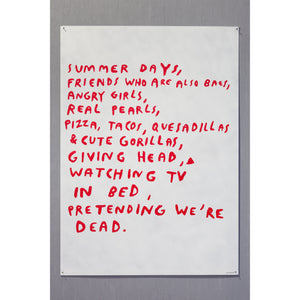 SUMMER DAYS,
FRIENDS WHO ARE ALSO BAES,
ANGRY GIRLS,
REAL PEARLS,
PIZZA, TACOS, QUESADILLAS
& CUTE GORILLAS,
GIVING HEAD,
WATCHING TV
IN BED,
PRETENDING WE'RE
DEAD.